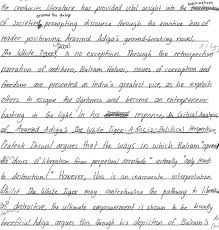 for centuries literature has provided vital insight into the
of societies, projecting discourse through the emotive lens of
reader positioning. Aravind Adiga's ground-breaking novel
The White Tiger is no exception. Through the retrospective
narration of antihero, Balram Halwai, issues of corruption and
freedom are presented as India's greatest vice, as he exploits
others to escape the darkness and become an entrepreneur
basking in the light. In his response, A Critical Analysis
of Aravind Adiga's The White Tiger: A Socio-Political Perspective,
Prateek Deswal argues that the ways in which Balram
ideas of liberation from perpetual servitude "actually only
to destruction". However, this is an inaccurate interpretation.
Whilst The White Tiger may contextualise the pathway to
as destructive, the ultimate empowerment is shown to be
beneficial. Adiga argues this through his depiction of Balram's